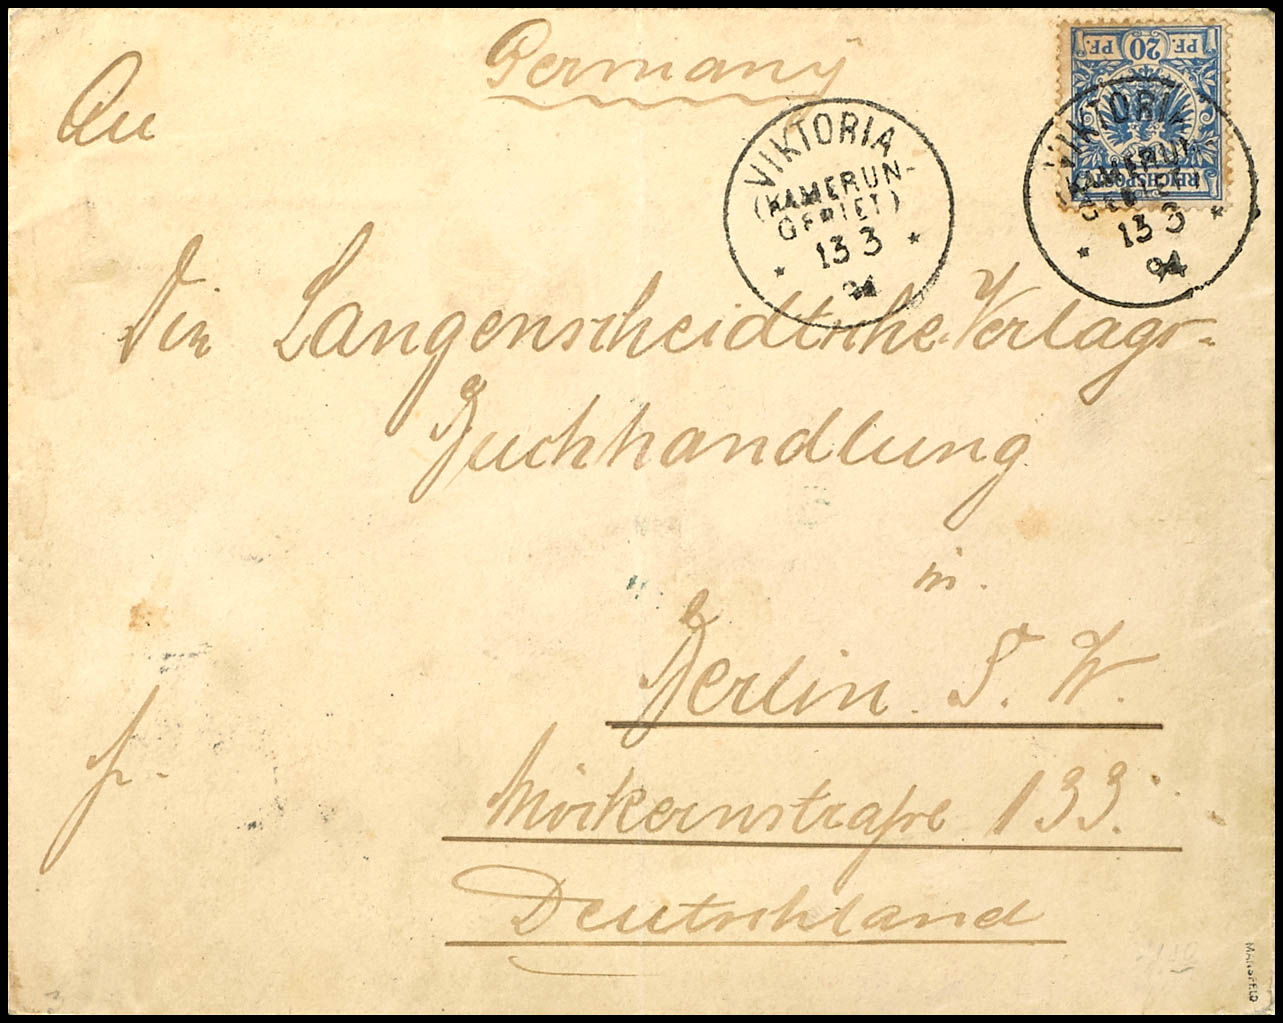 Germany
An
PF. 20 PF.
REICHSPOST
VIKTORIA
(KAMERUN-
GEBIET)
13 3
94
VIKTORIA
KAMERUN
GEBIET
13 3
94
Die Langenscheidtsche Verlags-
Buchhandlung
in
Berlin S. W.
fr.
Möckernstraße 133.
Deutschland
MANSFELD